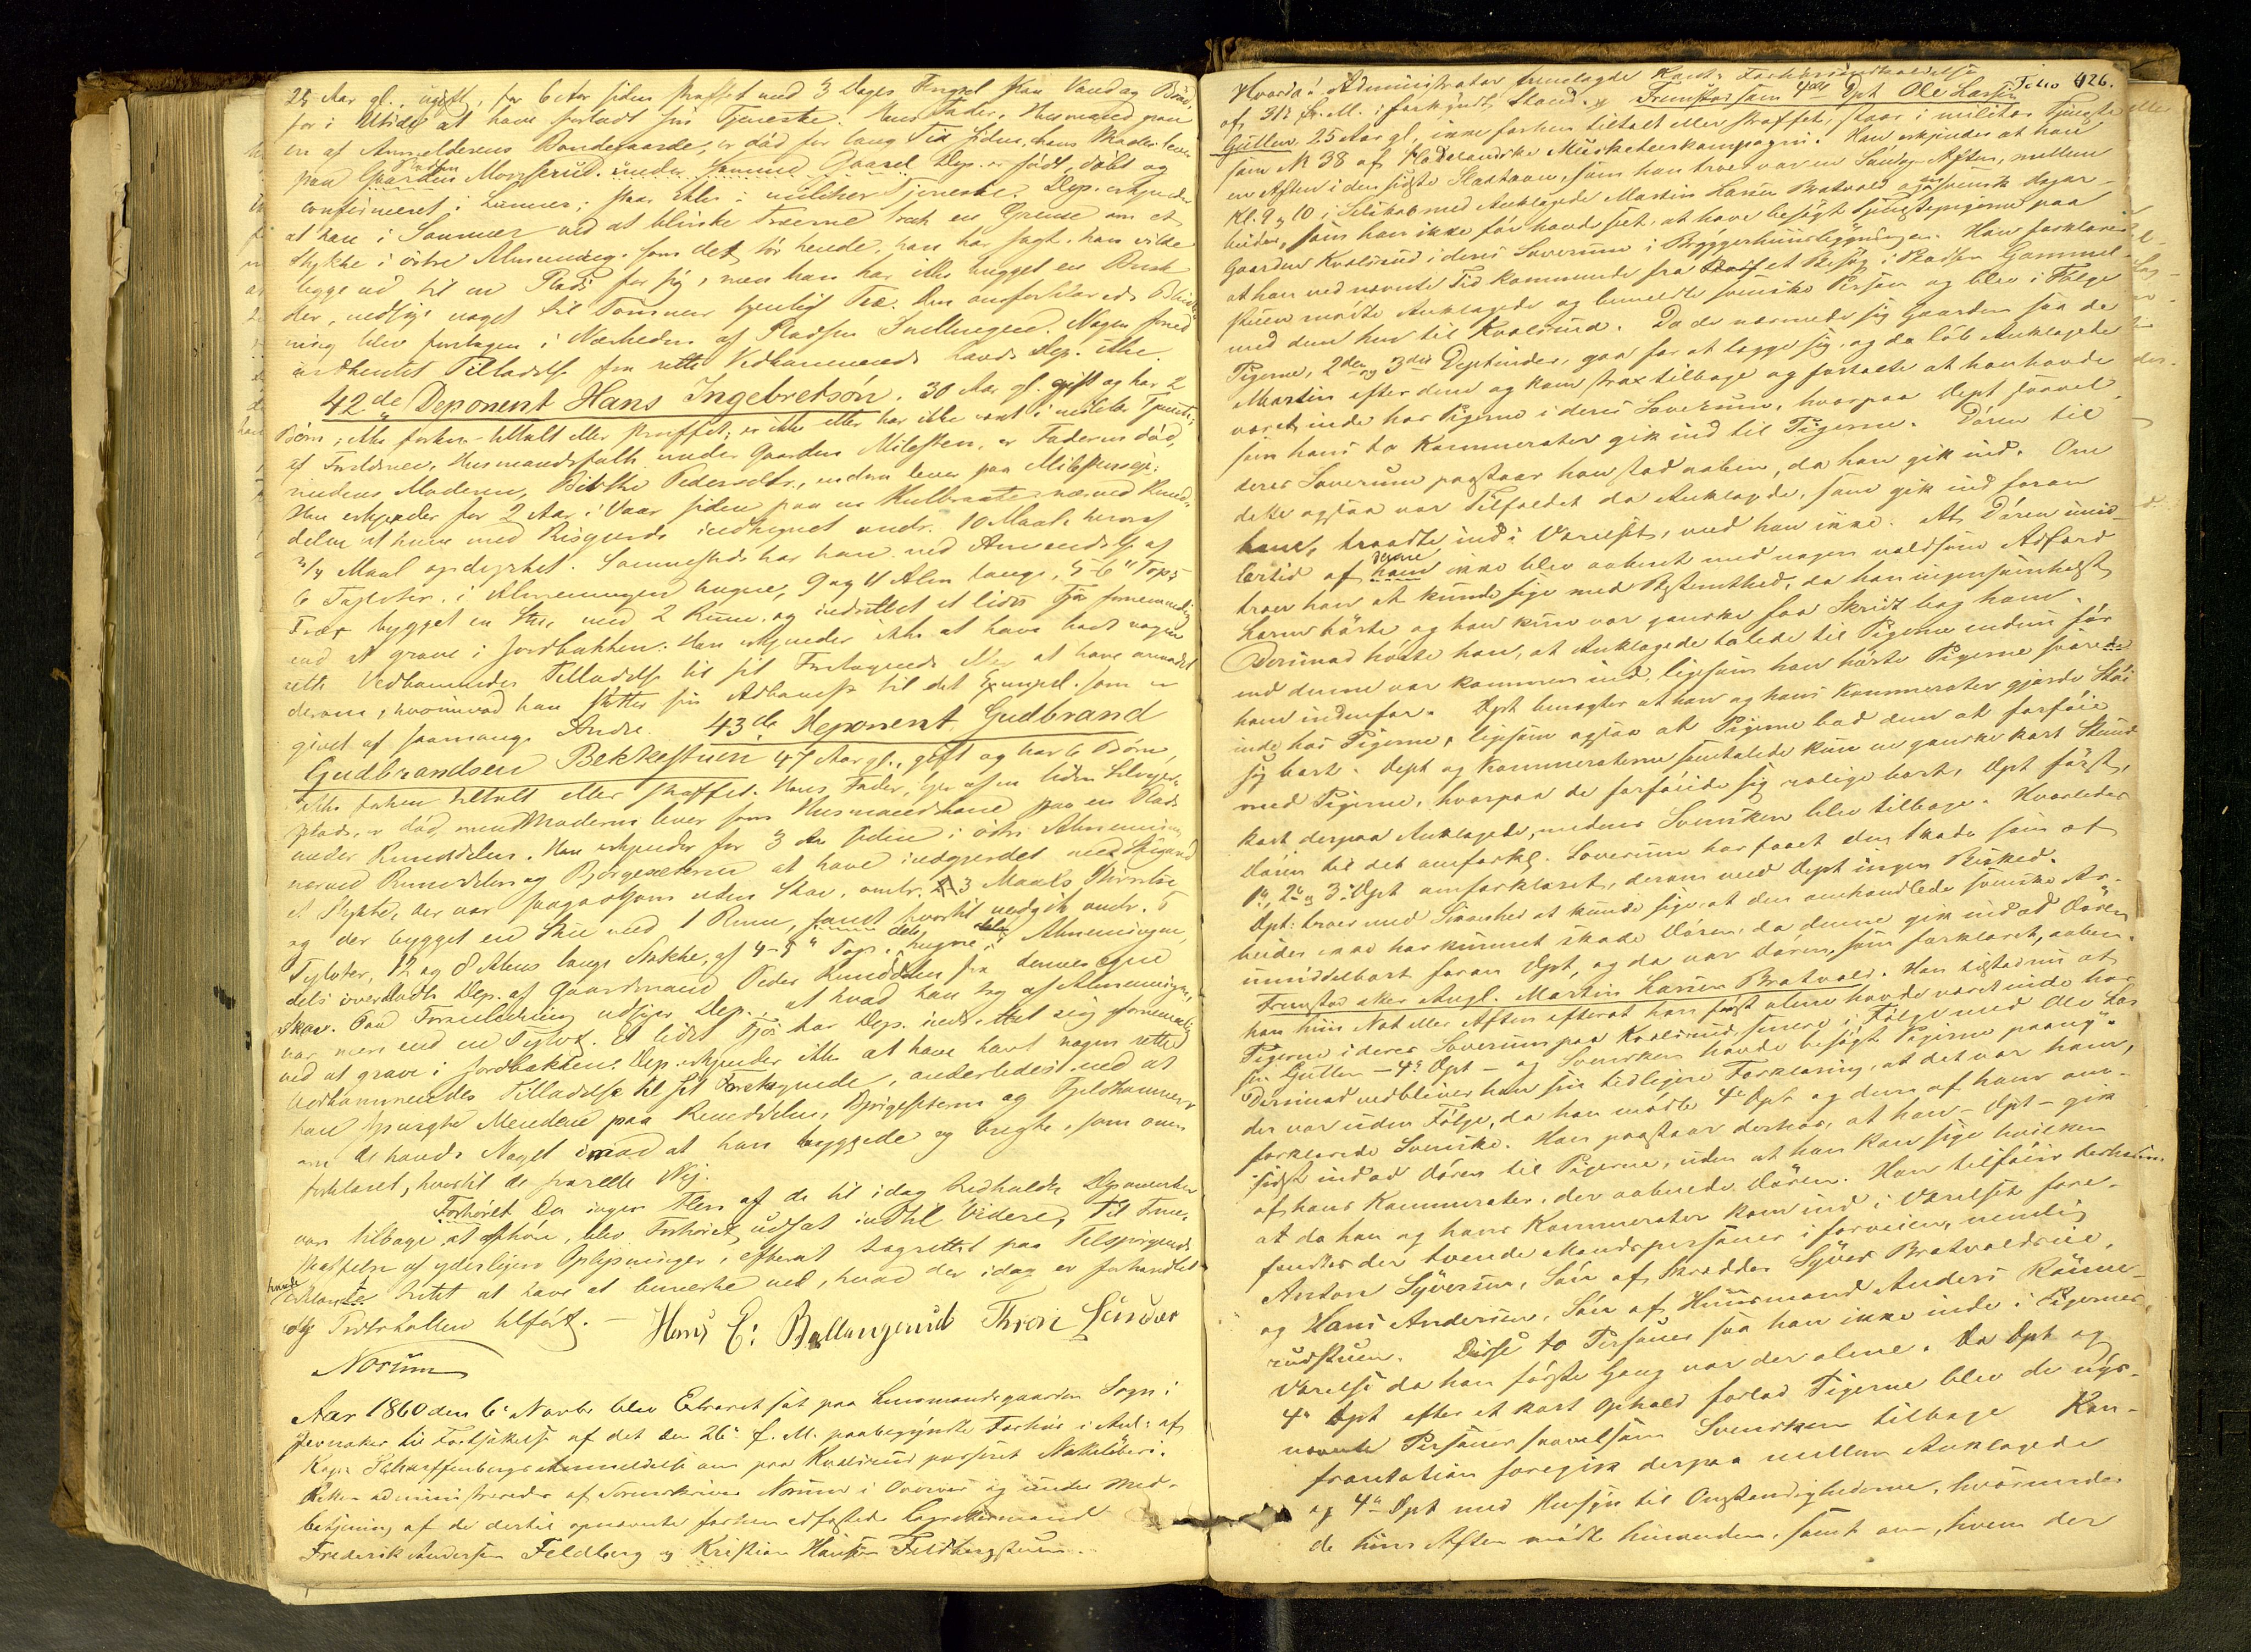 25 Aar gl., ugift, for 6 Aar siden straffet med 3 Dages Fængsel paa Vand og Brød,
for i Utide at have forladt sin Tjeneste. Hans Fader, Husmand paa
en af Anmelderens Bondegaarde, er død for lang Tid siden, hans Moder lever
paa Pladsen Morsserud under Dep. er født, døbt og
confirmeret i Lunner; staar ikke i militær Tjeneste. Dep. erkjender
at han i Sommer ved at blinke Træerne trak en Grænse om et
Stykke i østre Almenning. Som det tør hende, han har sagt, han vilde
ligge ud til en Plads for sig, men han har ikke hugget en Busk
der, nedsige noget til Tømmer tjenligt Træ. Den omforklarede Blink-
ning blev foretagen i Nærheden af Pladsen Snellingen. Nogen fored
indhentet Tilladelse fra rette Vedkommende havde Dep. ikke.
42de Deponent Hans Ingebretsøn, 30 Aar gl. gift og har 2
Børn; ikke forhen tiltalt eller straffet; er ikke eller har ikke været i militær Tjeneste;
af Forældrene, Husmandsfolk under Gaarden Milessen, er Faderen død,
medens Moderen, Birthe Pedersdtr., endnu lever paa Milessenseie.
Han erkjender for 2 Aar i Vaar siden paa en Kulbraate nærved Rund-
delen at have med Risgjerde indhegnet omtr. 10 Maal, hvoraf
3/4 Maal opdyrket. Sammesteds har han ved Anvendelse af
6 Tylvter i Almenningen hugne, 9 og 11 Alen lange, 5-6" Tops
Træer bygget en Stue med 2 Rum, og indrettet et lidet Fjøs fornemmelig
ved at grave i Jordbakken. Han erkjender ikke at have havt nogen
rette Vedkommendes Tilladelse til sit Foretagende eller at have anmodet
derom, hvorimod han støtter sin Adkomst til det Exempel som er
givet af saamange Andre. 43de Deponent Gudbrand
Gudbrandsen Bekkestuen 47 Aar gl., gift og har 6 Børn,
ikke forhen tiltalt eller straffet. Hans Fader, Eier af en liden Selveier-
plads, er død, mens Moderen lever som Husmandskone paa en Plads
under Runddelen. Han erkjender for 3 Aar siden i østre Almenning
nærved Runddelen og Bjørgeseteren at have indgjerdet med Skigard
et Stykke, der var saagodtsom uden Skov, omtr. 3 Maals Størrelse
og der bygget en Stue med 1 Rum, hvortil medgik omtr. 5
Tylvter, 12 og 8 Alens lange Stokke, af 4-5" Top, dels hugne i Almenningen,
dels overladte Dep. af Gaardmand Peder Runddelen fra dennes egne
Skov. Paa Foranledning udsiger Dep., at hvad han tog af Almenningen,
var mere end en Tylvt. Et lidet Fjøs har Dep. indrettet sig fornemmelig
ved at grave i Jordbakken. Dep. erkjender ikke at have havt nogen rette
Vedkommendes Tilladelse til sit Foretagende, anderledes end at
han spurgte Mændene paa Runddelen, Bjørgeseteren og Fjeldhammer
om de havde Noget imod at han byggede og brugte, som om-
forklaret, hvortil de svarede Nej.
Forhøret Da ingen Flere af de til idag indkaldte Deponenter
vare tilbage at afhøre, blev Forhøret udsat indtil Videre, til Frem-
skaffelse af yderligere Oplysninger, efterat Lagrettet paa Tilspørgende
havde erklæret Intet at have at bemærke ved, hvad der idag er forhandlet
og Protokollen tilført. — Hans E: Ballangrud Thron Lunder
Norum
Aar 1860 den 6te Novbr. blev Extraret sat paa Lensmandsgaarden Sogn i
Jevnaker til Fortsættelse af det den 26de f. M. paabegyndte Forhør i Anl: af
Kapt. Scharffenbergs Anmeldelse om paa Kvalsrud passeret Natteløberi.
Retten administreredes af Sorenskriver Norum i Overvær og under Med-
betjening af de dertil opnævnte forhen edfæstede Lagrettesmænd
Frederik Andersen Feldberg og Kristian Hansen Feldbergstuen.
Folio 426.
Hvorda! Administrator fremlagde Konst. Foged
af 31te f. M. i forkyndt Stand. Fremstod som 4de Dpt Ole Larsen
Gullen, 25 Aar gl, ikke forhen tiltalt eller straffet, staar i militær Tjeneste
som No 38 af Hadelandske Musketeerkompagni. Han erkjender at han
en Aften i den sidste Slaataan, som han troer var en Søndags Aften, mellem
Kl. 9 og 10 i Selskab med Anklagede Martin Larsen Bratvold og en svensk Arbei-
beider, som han ikke før havde seet, at have besøgt Tjenestepigerne paa
Gaarden Kvalsrud i deres Soverum i Bryggerhuusbygningen. Han forklarer
at han ved nævnte Tid kommende fra et Besøg i Pladsen Gammel-
stuen mødte Anklagede og bemeldte svenske Person og blev i Følge
med dem hen til Kvalsrud. Da de nærmede sig Gaarden saa de
Pigerne, 2den og 3die Deptinder, gaa for at lægge sig, og da løb Anklagede
Martin efter dem og kom strax tilbage og fortalte at han havde
været inde hos Pigerne i deres Soverum, hvorpaa Dept saavel
som hans to Kammerater gik ind til Pigerne. Døren til
deres Soverum paastaar han stod aaben, da han gik ind. Om
dette ogsaa var Tilfældet da Anklagede, som gik ind foran
ham, traadte ind i Værelset, ved han ikke. At Døren imid-
lertid af denne ikke blev aabnet med nogen voldsom Adfærd
troer han at kunde sige med Bestemthed, da han ingensomhelst
Larm hørte og han kun var ganske faa Skridt bag ham.
Derimod hørte han, at Anklagede talede til Pigerne endnu før
end denne var kommen ind, ligesom han hørte Pigerne svarede
ham indenfor. Dpt benægter at han og hans Kammerater gjorde Støi
inde hos Pigerne, ligesom ogsaa at Pigerne bad dem at forføie
sig bort. Dept og Kammeraterne samtalede kun en ganske kort Stund
med Pigerne, hvorpaa de forføiede sig rolige bort, Dpt først,
kort derpaa Anklagede, medens Svensken blev tilbage. Hvorledes
Døren til det omforkl. Soverum har faaet den Skade som af
1te, 2den og 3die Dpt omforklaret, derom ved Dept ingen Besked.
Dpt: troer med Sikkerhed at kunde sige, at den omhandlede svenske Ar-
beider ikke har kunnet skade Døren, da denne gik ind ad Døren
umiddelbart foran Dpt, og da var Døren, som forklaret, aaben.
Fremstod atter Angl. Martin Larsen Bratvold. Han tilstod nu at
han hiin Nat eller Aften efterat han først alene havde været inde hos
Pigerne i deres Soverum paa Kvalsrud, senere i Følge med Ole Lar-
sen Gullen — 4de Dpt — og Svensken havde besøgt Pigerne paany.
Derimod vedbliver han sin tidligere Forklaring, at det var ham,
der var uden Følge, da han mødte 4de Dpt og den af ham om-
forklarede Svenske. Han paastaar derhos, at han — Dpt — gik
sidst ind ad Døren til Pigerne, uden at han kan sige hvilken
af hans Kammerater, der aabnede Døren. Han tilføier derhos
at da han og hans Kammerater kom ind i Værelset fore-
fandtes der tvende Mandspersoner i forveien, nemlig
Anton Syversen, Søn af Skrædder Syver Bratvoldseie,
og Hans Andersen, Søn af Huusmand Anders Rønne-
rudstuen. Disse to Personer saa han ikke inde i Pigernes
Værelse da han første Gang var der alene. Da Dpt og
4de Dpt efter et kort Ophold forlod Pigerne blev de nys-
nævnte Personer saavelsom Svensken tilbage Kon-
frontation foregik derpaa mellem Anklagede
og 4de Dpt med Hensyn til Omstændighederne, hvorunder
de hiin Aften mødte hinanden, samt om, hvem der